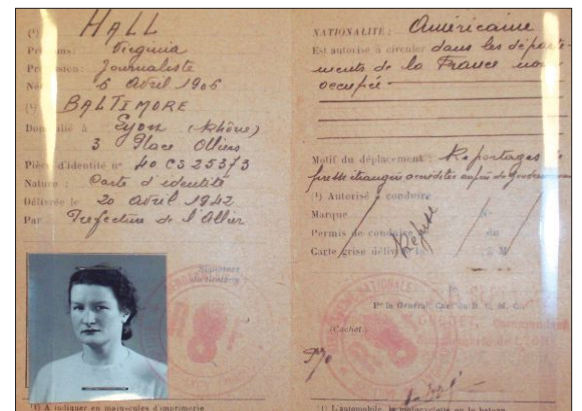 (¹) HALL
Prénoms : Virginia
Profession : Journaliste
Né 5 Avril 1906
(¹) BALTIMORE
Domicilié à Lyon (Rhône)
3 Place Olliers
Pièce d'identité nº 40 CS 25373
Nature : Carte d'identité
Délivrée le 20 avril 1942
Par Préfecture de l'Allier
Signature
(1) A indiquer en majuscules d'imprimerie
NATIONALITE : Américaine
Est autorisé à circuler dans les départe-
ments de la France non
occupée -
Motif du déplacement : Reportages
presse étrangère accréditée auprès du Gouvernement
(¹) Autorisé à conduire
Marque Nº
Permis de conduire du
Carte grise délivrée à M
Refusé
Pʳ le Général, Cᵈᵗ du
(Cachet.)